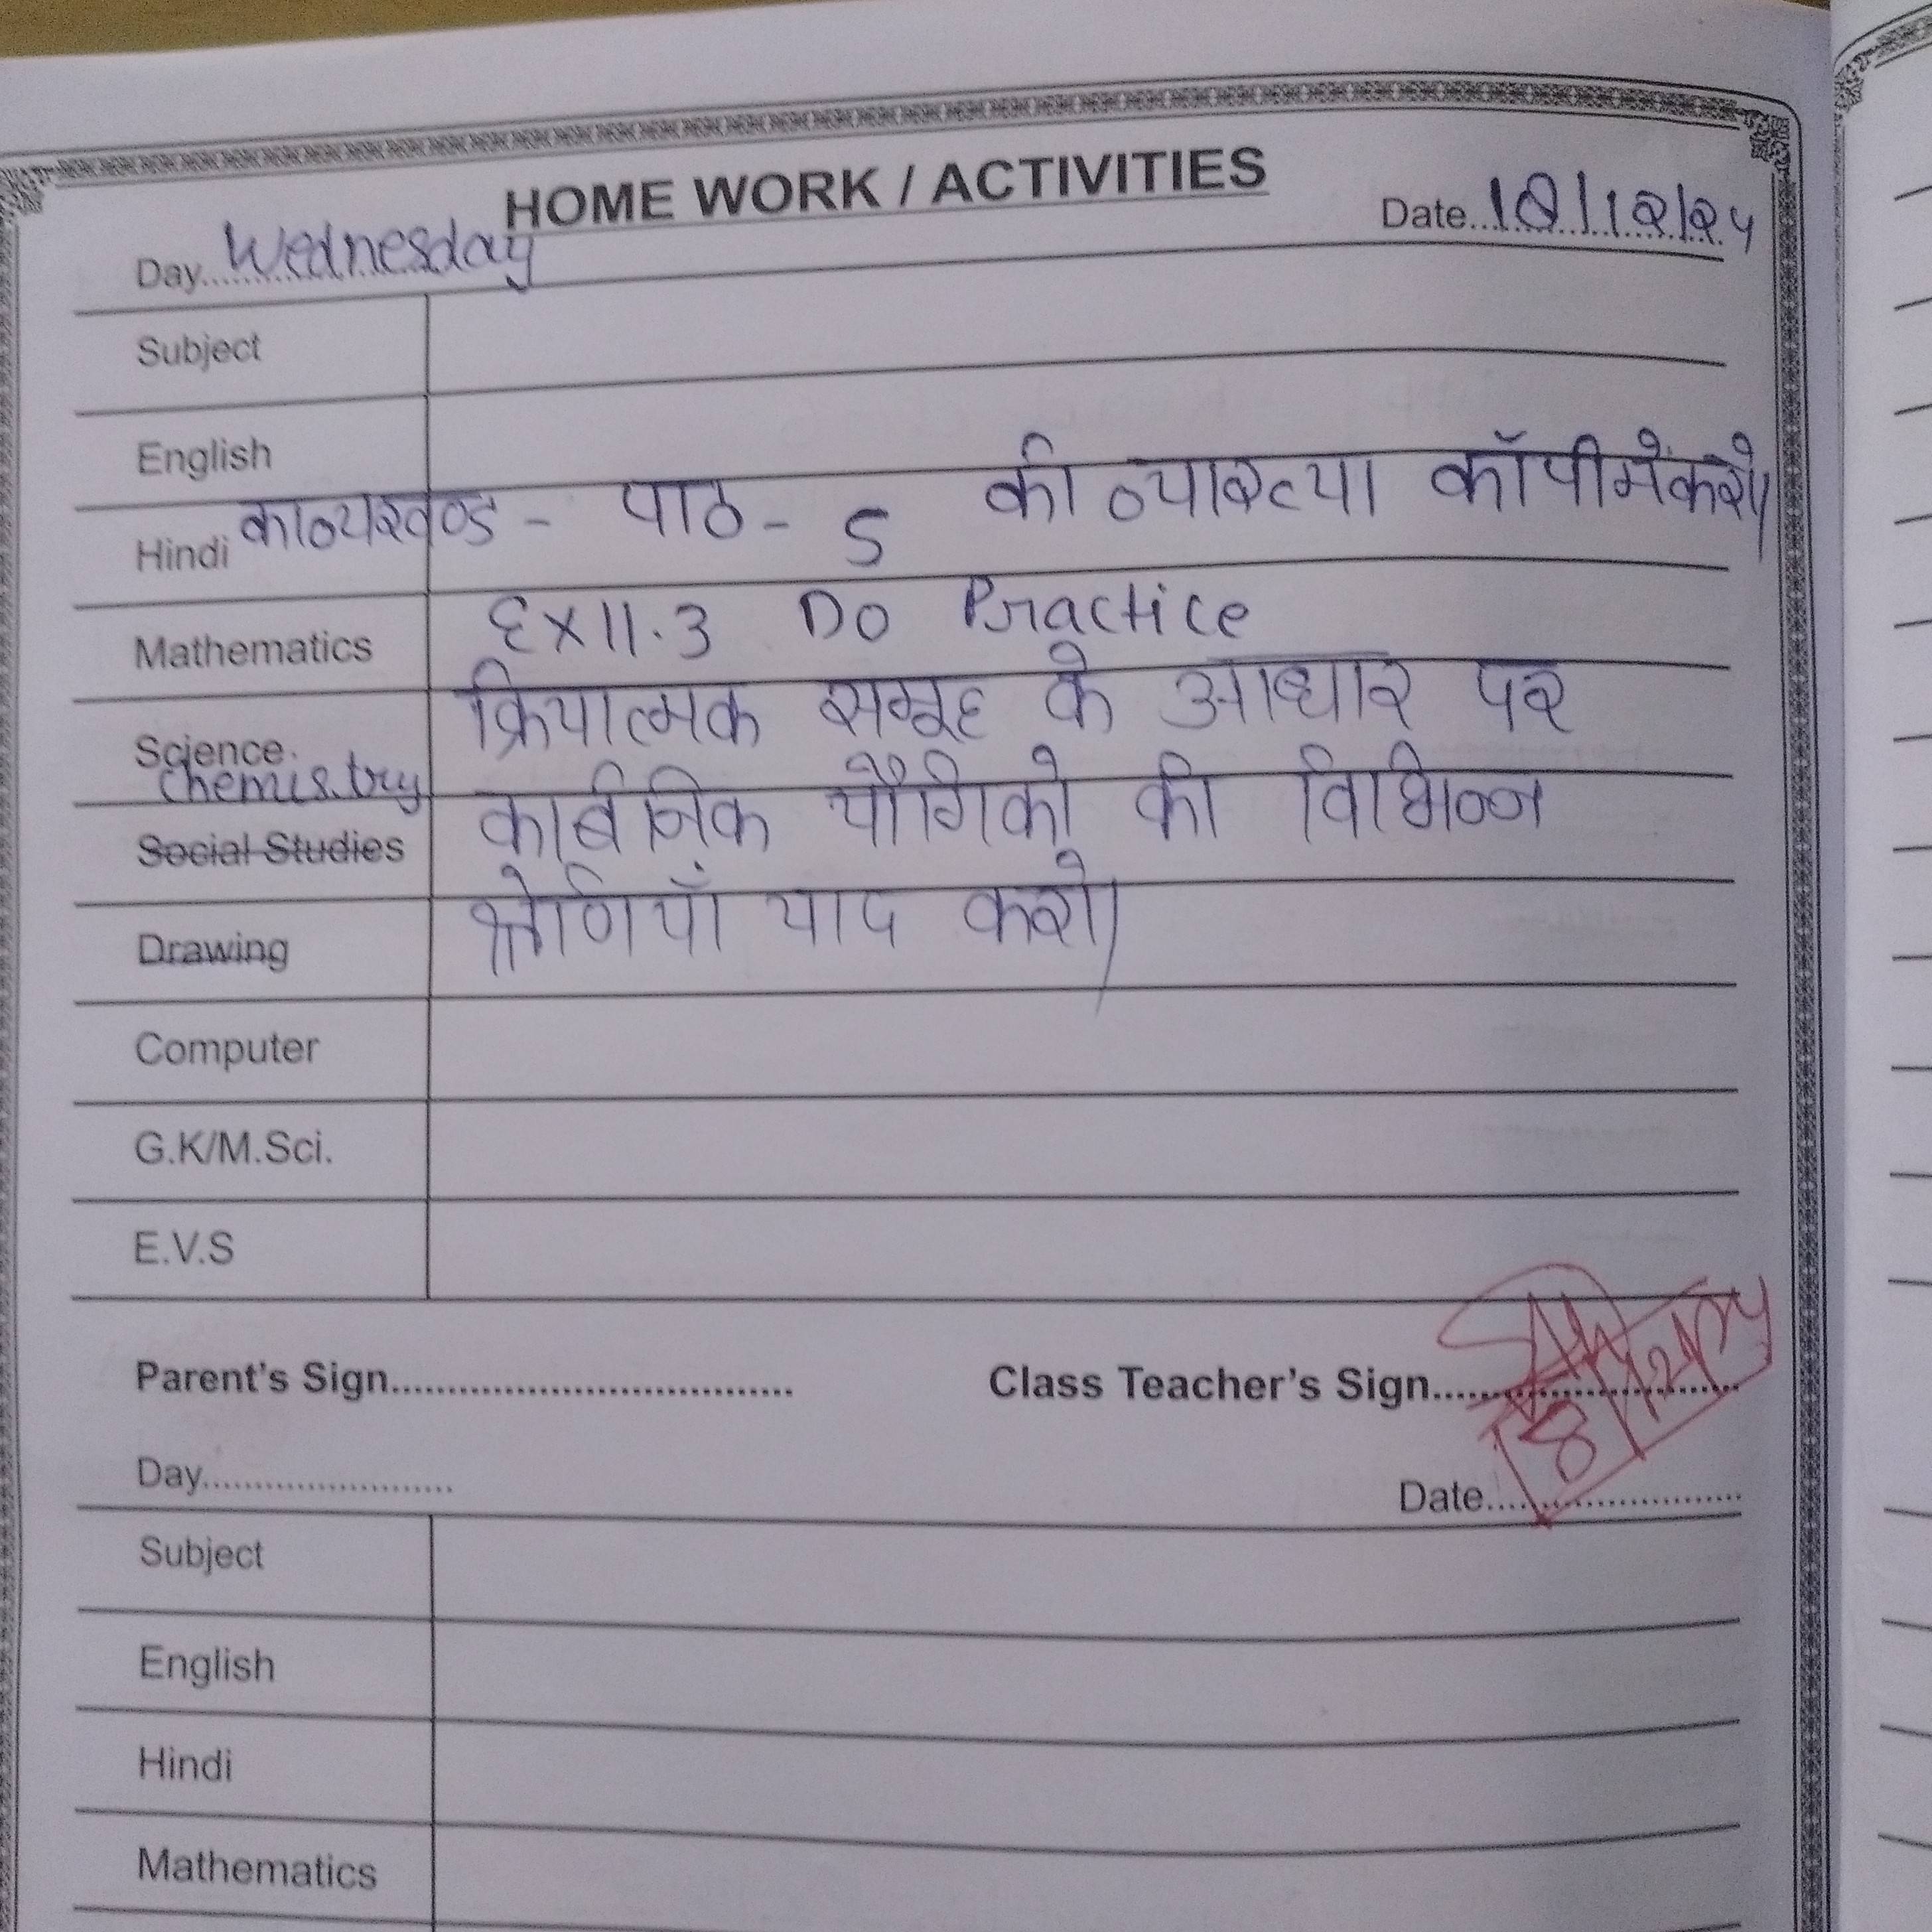 HOME WORK / ACTIVITIES
Day Wednesday Date 18/12/24
Subject
English
Hindi काव्यखण्ड - पाठ - 5 की व्याख्या कॉपी में करो।
Mathematics Ex 11.3 Do Practice
Science क्रियात्मक समूह के आधार पर
Chemistry
Social Studies कार्बनिक यौगिको की विभिन्न
Drawing श्रेणियाँ याद करो।
Computer
G.K/M.Sci.
E.V.S
Parent's Sign Class Teacher's Sign
Day Date
Subject
English
Hindi
Mathematics